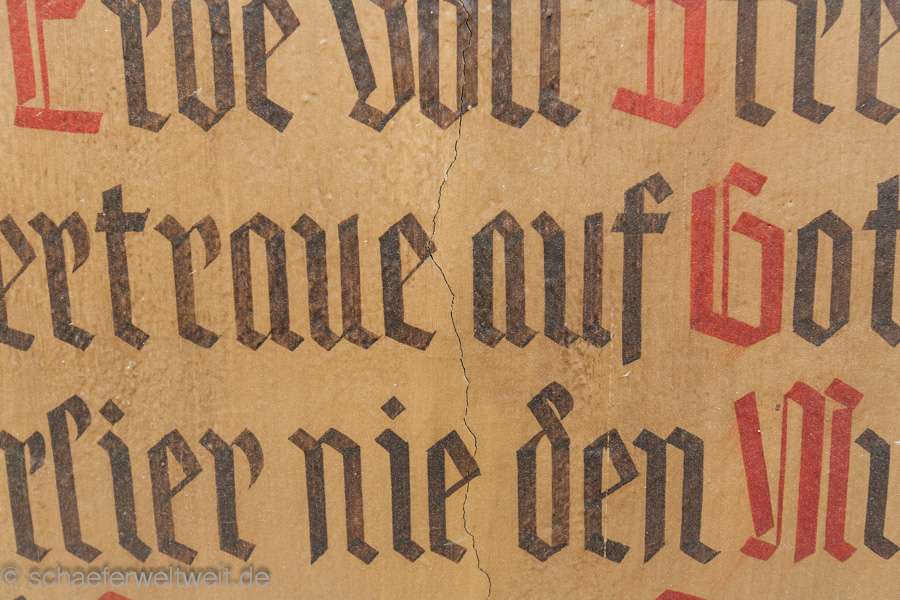 Erde voll Stre
ertraue auf Got
rlier nie den Mu
© schaeferweltweit.de